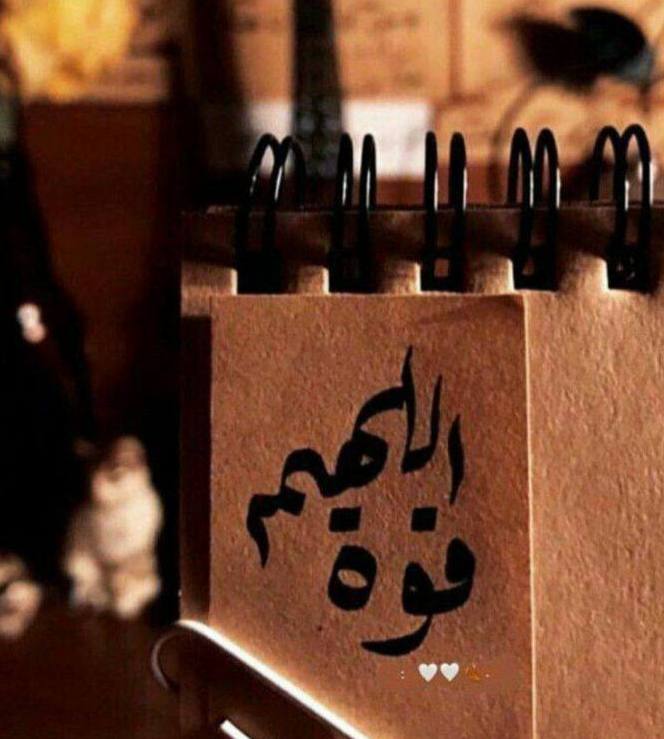 اللهم
قوة
: 🤍🤍🍂.